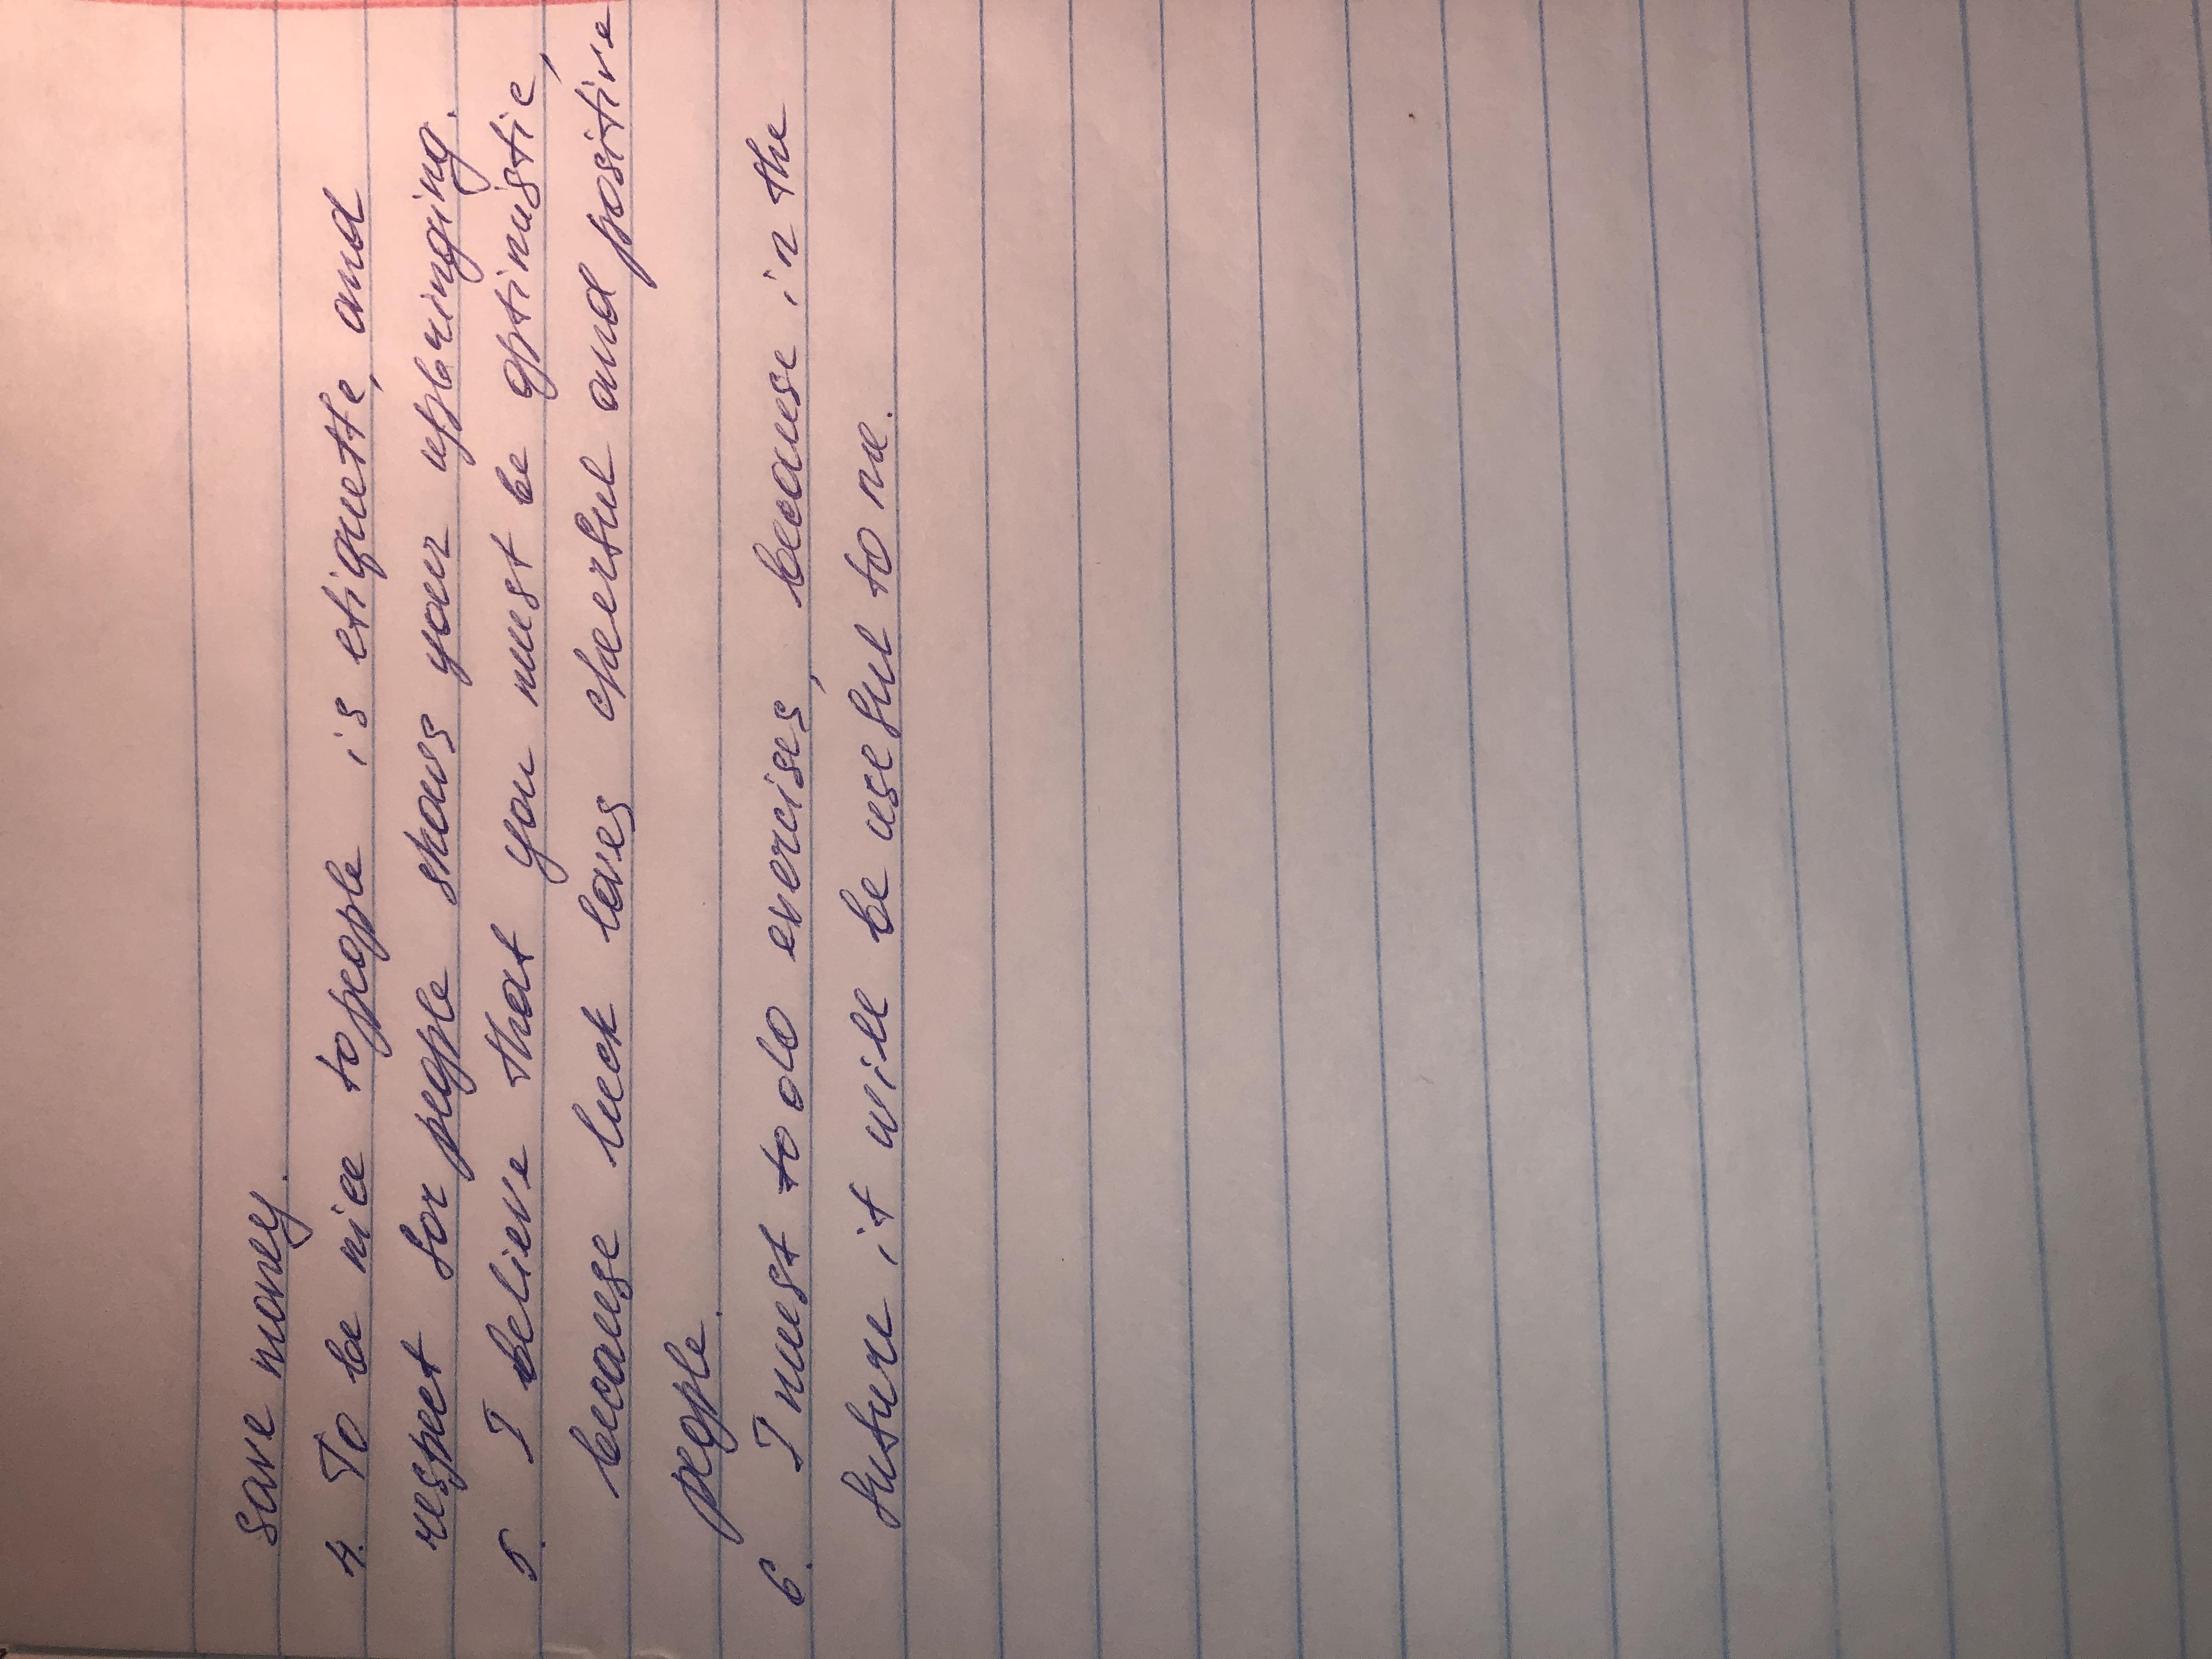 save money.
4. To be nice to people is etiquette, and
respect for people shows your upbringing.
5. I believe that you must be optimistic,
because luck loves cheerful and positive
people.
6. I must to do exercises, because in the
future it will be useful to me.